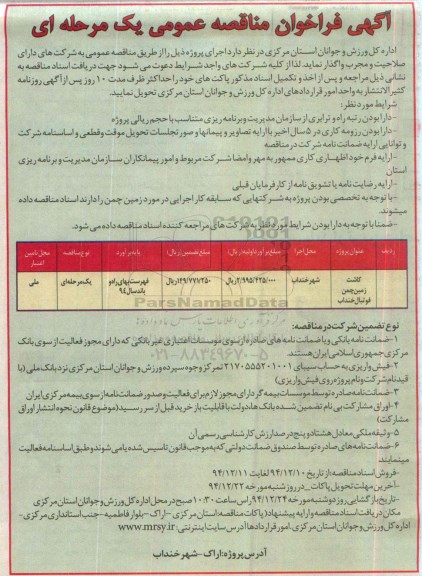 آگهی فراخوان مناقصه عمومی یک مرحله ای
اداره کل ورزش و جوانان استان مرکزی در نظر دارد اجرای پروژه ذیل را از طریق مناقصه عمومی به شرکت های دارای
صلاحیت و مجرب واگذار نماید. لذا از کلیه شرکت های واجد شرایط دعوت می شود جهت دریافت اسناد مناقصه به
نشانی ذیل مراجعه و پس از اخذ و تکمیل اسناد مذکور پاکت های خود را حداکثر ظرف مدت ۱۰ روز پس از آگهی روزنامه
کثیر الانتشار به واحد امور قراردادهای اداره کل ورزش و جوانان استان مرکزی تحویل نمایید.
شرایط مورد نظر:
-دارا بودن رتبه راه و ترابری از سازمان مدیریت و برنامه ریزی متناسب با حجم ریالی پروژه
-دارا بودن رزومه کاری در ۵ سال اخیر با ارایه تصاویر و پیمانها و صورتجلسات تحویل موقت و قطعی و اساسنامه شرکت
و توانایی ارایه ضمانت نامه شرکت در مناقصه
-ارایه فرم خود اظهاری کاری ممهور به مهر و امضا شرکت مربوط و امور پیمانکاران سازمان مدیریت و برنامه ریزی
استان
-ارایه رضایت نامه یا تشویق نامه از کارفرمایان قبلی
-با توجه به تخصصی بودن پروژه به شرکتهایی که سابقه کار اجرایی در مورد زمین چمن را دارند اسناد مناقصه داده
میشوند.
-ضمنا با توجه به دارا بودن شرایط مورد نظر به شرکت های مراجعه کننده اسناد مناقصه داده می شود.
ردیف عنوان پروژه محل اجرا مبلغ برآورد اولیه(ریال) مبلغ تضمین(ریال) پایه برآورد نوع مناقصه محل تامین اعتبار
۱ کاشت زمین چمن فوتبال خنداب شهر خنداب ۲/۹۹۵/۴۲۵/۰۰۰ریال ۱۴۹/۷۷۱/۲۵۰ریال فهرست بهای راه و باند سال ۹۴ یک مرحله ای ملی
ParsNamadData
۰۲۱-۸۸۳۴۹۶۷۰-۵
نوع تضمین شرکت در مناقصه:
۱-ضمانت نامه بانکی و یا ضمانت نامه های صادره از سوی موسسات اعتباری غیر بانکی که دارای مجوز فعالیت از سوی بانک
مرکزی جمهوری اسلامی ایران هستند.
۲-فیش واریزی به حساب سیبای ۲۱۷۰۵۵۵۲۰۱۰۰۱ تمرکز وجوه سپرده ورزش و جوانان استان مرکزی نزد بانک ملی (با
قید نام شرکت و نام پروژه روی فیش واریزی)
۳-ضمانت نامه صادره توسط موسسات بیمه گر دارای مجوز لازم برای فعالیت و صدور ضمانت نامه از سوی بیمه مرکزی ایران
۴-اوراق مشارکت بی نام تضمین شده بانک ها و دولت با قابلیت باز خرید قبل از سر رسید (موضوع قانون نحوه انتشار اوراق
مشارکت)
۵-وثیقه ملکی معادل هشتاد و پنج درصد ارزش کارشناسی رسمی آن
۶-ضمانت نامه های صادره توسط صندوق ضمانت دولتی که به موجب قانون تاسیس شده یا می شوند و طبق اساسنامه فعالیت
مینمایند
-فروش اسناد مناقصه: از تاریخ ۹۴/۱۲/۱۰ لغایت ۹۴/۱۲/۱۱
-آخرین مهلت تحویل پاکات در روز شنبه مورخه ۹۴/۱۲/۲۲
-تاریخ بازگشایی روز دوشنبه مورخه ۹۴/۱۲/۲۴ راس ساعت ۱۰:۳۰ صبح در محل اداره کل ورزش و جوانان استان مرکزی
مکان دریافت اسناد مناقصه و ارایه پیشنهاد (پاکات مناقصه): استان مرکزی -اراک -بلوار فاطمیه -جنب استانداری مرکزی-
اداره کل ورزش و جوانان استان مرکزی. امور قراردادها آدرس سایت اینترنتی: www.mrsy.ir
آدرس پروژه: اراک-شهر خنداب